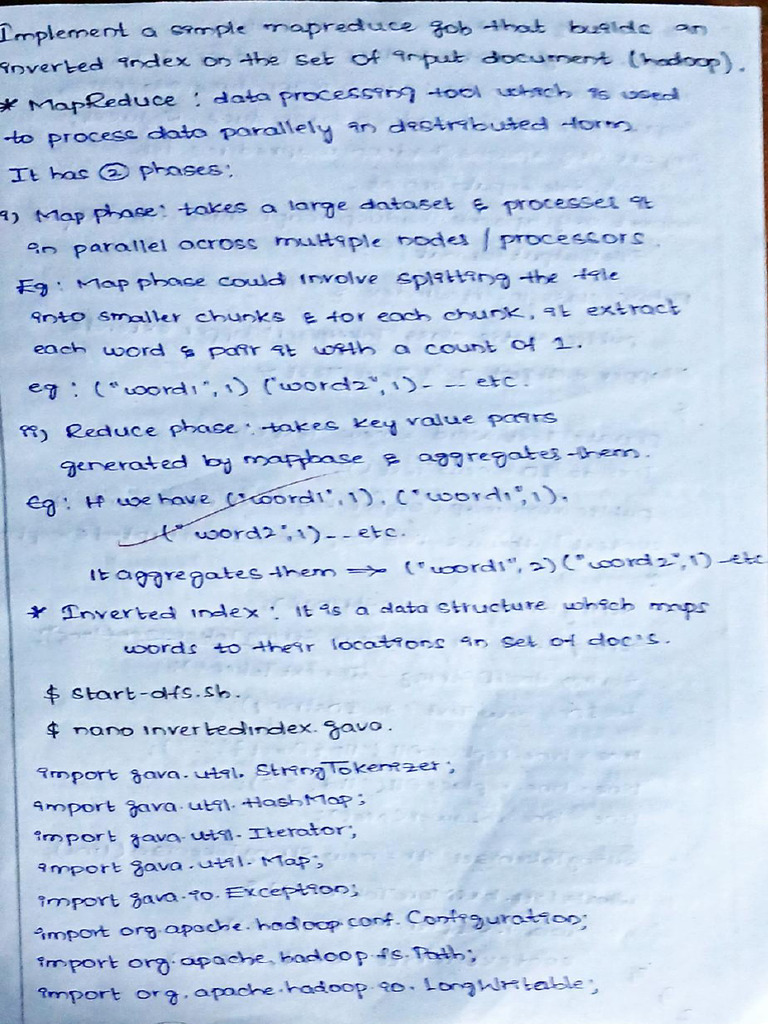 Implement a simple mapreduce job that builds an
inverted index on the set of input document (hadoop).
* MapReduce : data processing tool which is used
to process data parallely in distributed form.
It has ② phases:
i) Map phase: takes a large dataset & processes it
in parallel across multiple nodes / processors.
Eg: Map phase could involve splitting the file
into smaller chunks & for each chunk, it extract
each word & pair it with a count of 1.
eg : ("word1", 1) ("word2", 1) - -- etc.
ii) Reduce phase: takes key value pairs
generated by mapphase & aggregates them.
Eg: If we have ("word1", 1), ("word1", 1),
("word2", 1) -- etc.
It aggregates them => ("word1", 2) ("word2", 1) - etc
* Inverted index: it is a data structure which maps
words to their locations in set of doc's.
$ start-dfs.sh.
$ nano invertedindex.java.
import java.util.StringTokenizer;
import java.util.HashMap;
import java.util.Iterator;
import java.util.Map;
import java.io.Exception;
import org.apache.hadoop.conf.Configuration;
import org.apache.hadoop.fs.Path;
import org.apache.hadoop.io.LongWritable;